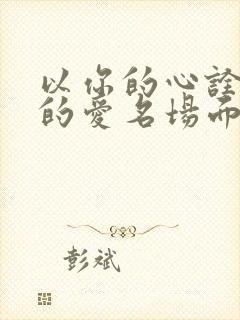 以你的心詮
的愛名場面
彭斌